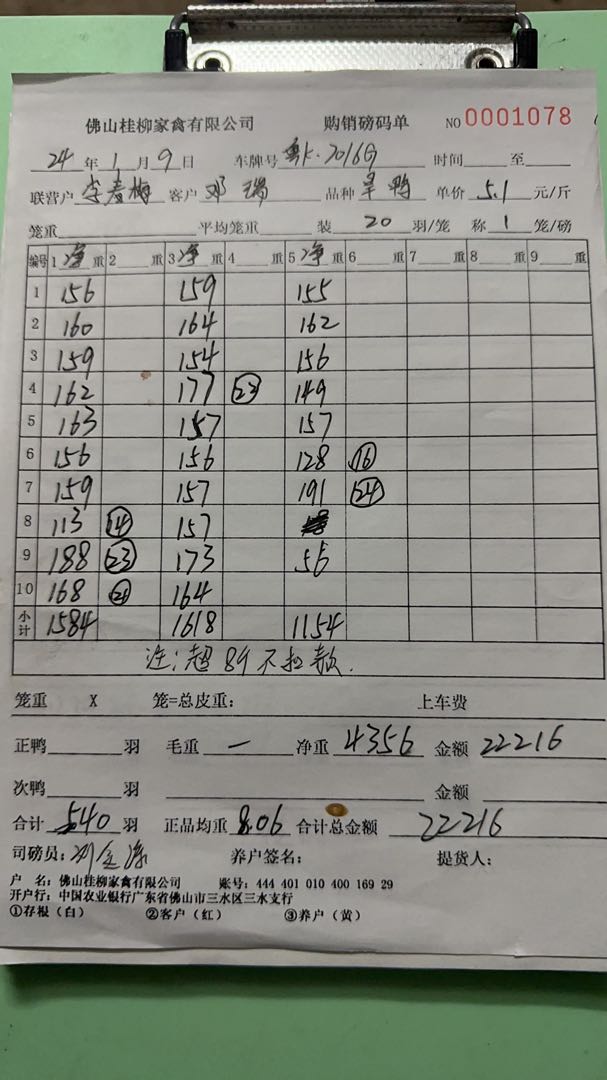 佛山桂柳家禽有限公司 购销磅码单 NO 0001078
24年1月9日 车牌号 粤K·2016G 时间 至
联营户 李春梅 客户 邓瑞 品种 旱鸭 单价 5.1 元/斤
笼重 平均笼重 装 20 羽/笼 称 1 笼/磅
编号 1 净重 2 重 3 净重 4 重 5 净重 6 重 7 重 8 重 9 重
1 156 159 155
2 160 164 162
3 159 154 156
4 162 177 23 149
5 163 157 157
6 156 156 128 16
7 159 157 191 24
8 113 14 157
9 188 23 173 56
10 168 21 164
小计 1584 1618 1154
注:超8斤不扣款.
笼重 X 笼=总皮重: 上车费
正鸭 羽 毛重 — 净重 4356 金额 22216
次鸭 羽 金额
合计 540 羽 正品均重 8.06 合计总金额 22216
司磅员: 养户签名: 提货人:
户 名:佛山桂柳家禽有限公司 账号:444 401 010 400 169 29
开户行:中国农业银行广东省佛山市三水区三水支行
①存根(白) ②客户(红) ③养户(黄)